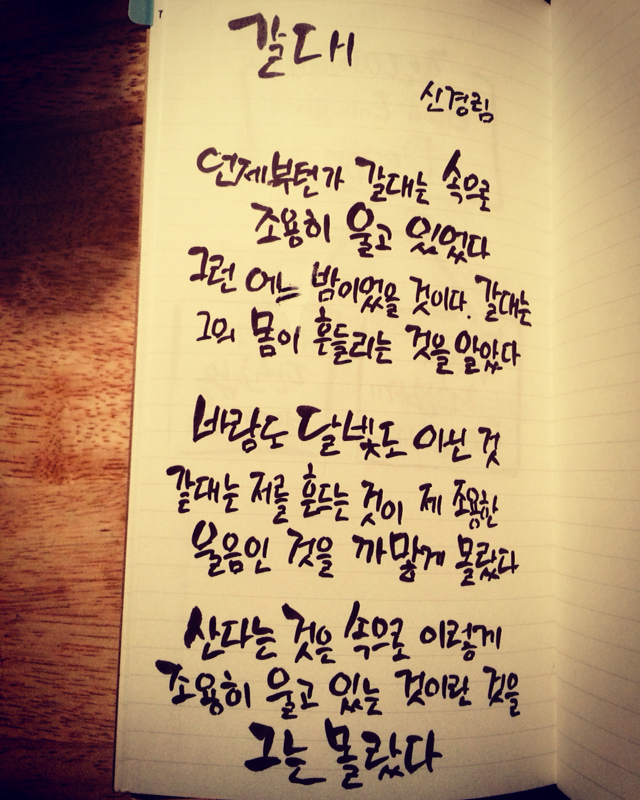 갈대
신경림
언제부턴가 갈대는 속으로
조용히 울고 있었다
그런 어느 밤이었을 것이다. 갈대는
그의 몸이 흔들리는 것을 알았다
바람도 달빛도 아닌 것
갈대는 저를 흔드는 것이 제 조용한
울음인 것을 까맣게 몰랐다
산다는 것은 속으로 이렇게
조용히 울고 있는 것이란 것을
그는 몰랐다